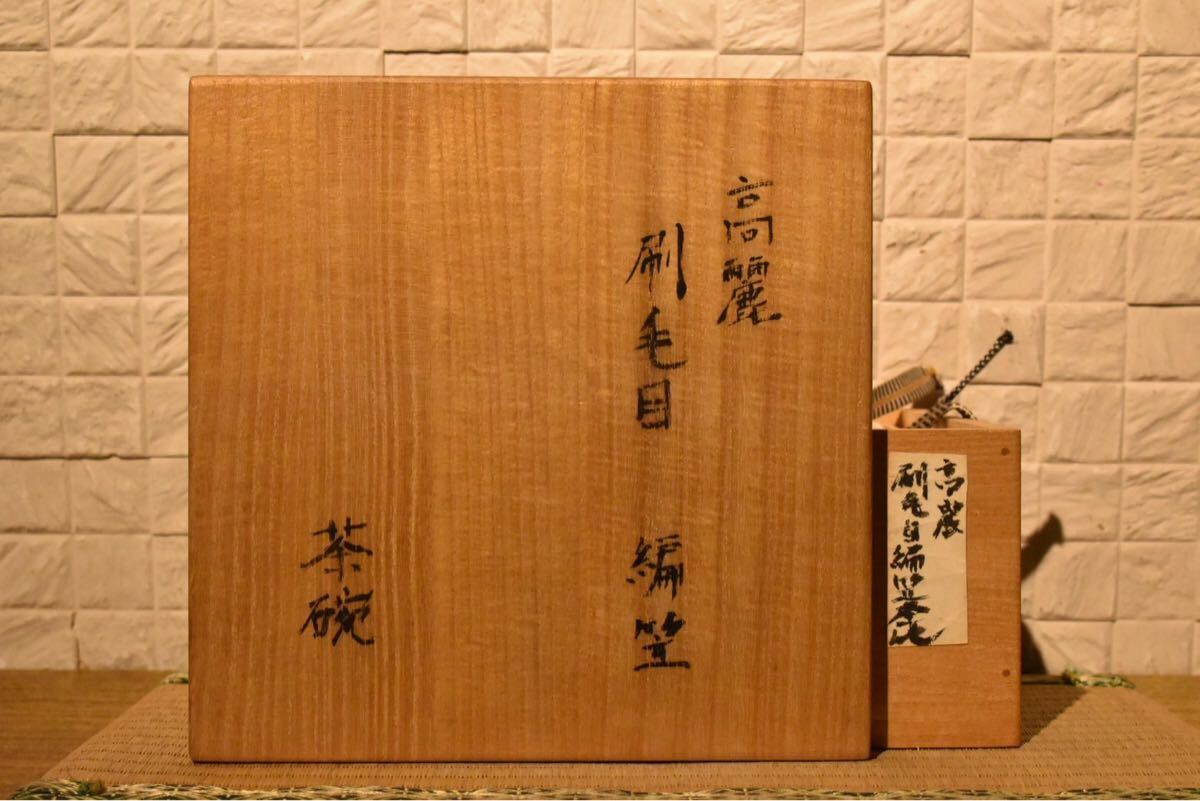 高麗
刷毛目 編笠
茶碗
高麗
刷毛目編笠茶碗